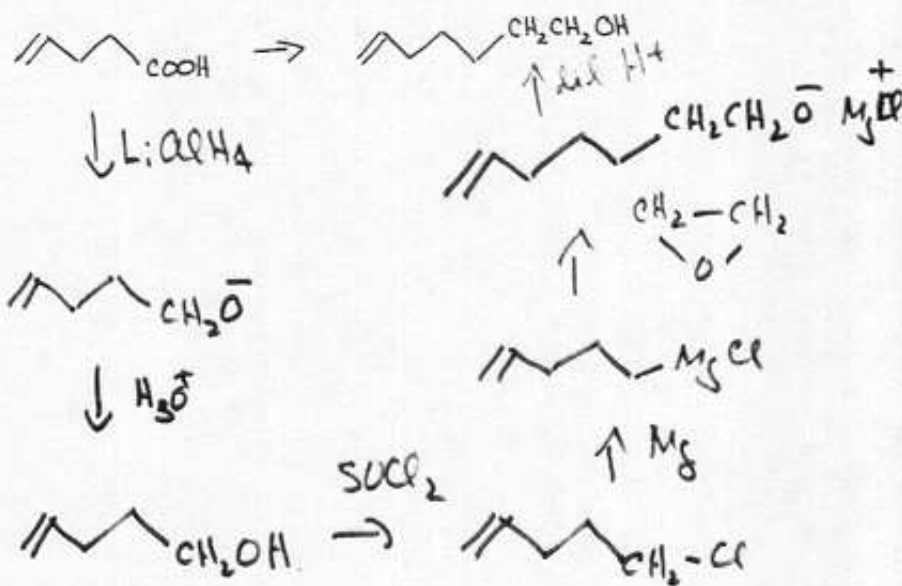 COOH → CH₂CH₂OH
↓ LiAlH₄
↑ dil H+
CH₂CH₂O⁻ Mg⁺Cl
CH₂—CH₂
O
↑
CH₂O⁻
↓ H₃O⁺
MgCl
↑ Mg
SOCl₂
CH₂OH → CH₂-Cl